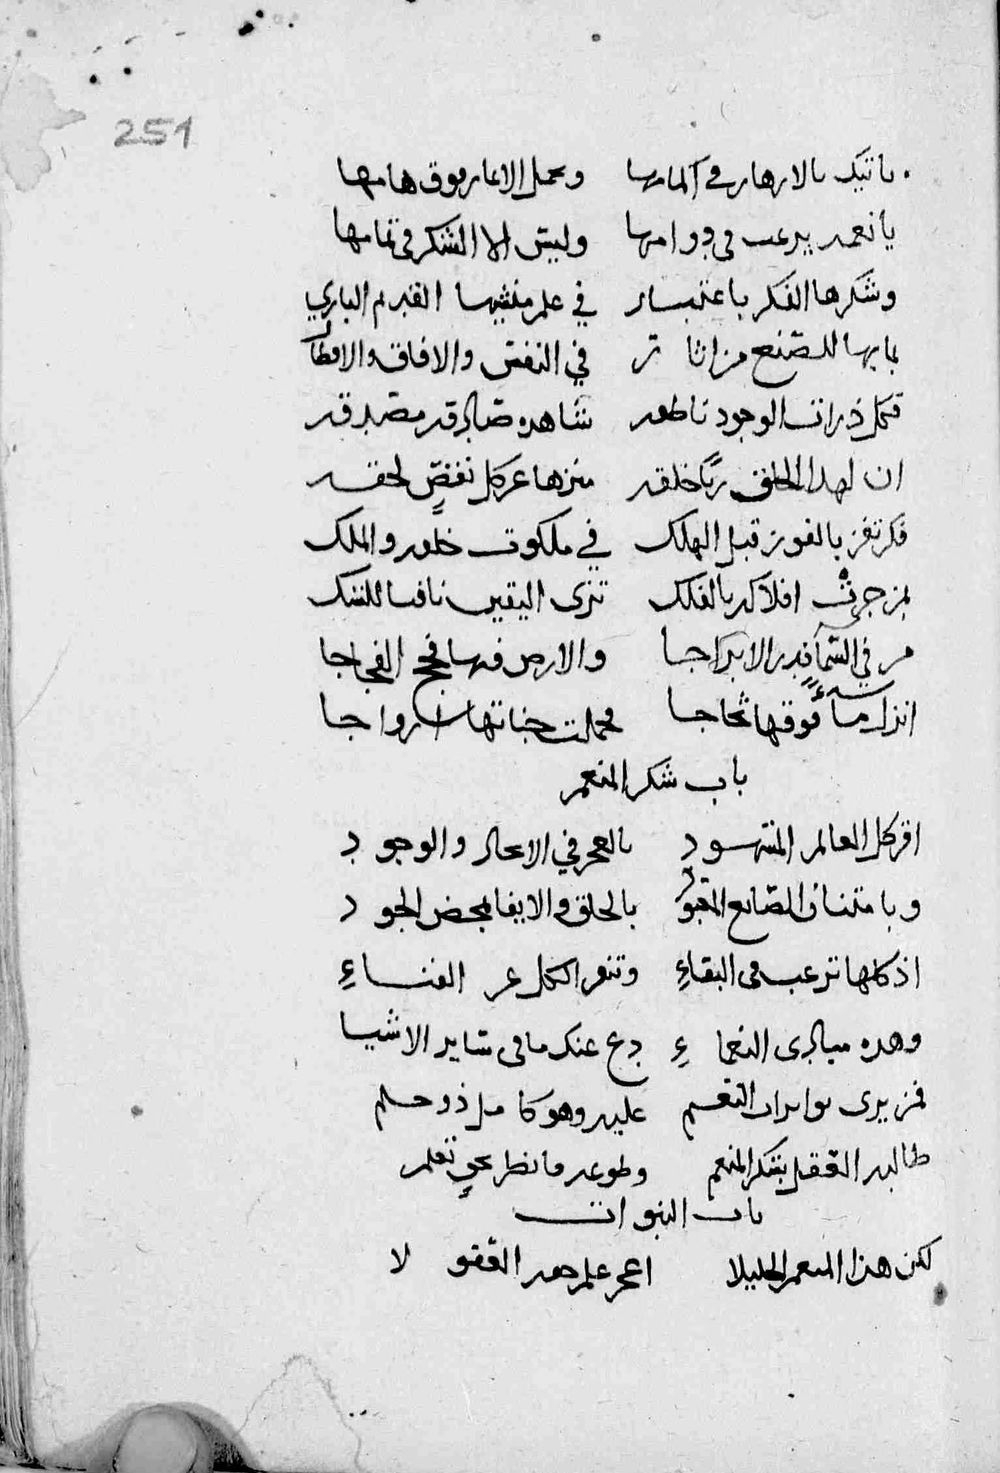 251
ياتيك بالازهار في اكمامها وتحمل الاثمار فوق هامها
يا نعمه يرغب في دوامها وليس الا الشكر في تمامها
وشكرها الفكر باعتبار في علم منشيها القديم الباري
بما بها للصنع من اثار في النفس والافاق والاقطار
فكل ذرات الوجود ناطقه شاهده صادقه مصدقه
ان لهذا الخلق ربًا خلقه منزها عن كل نقص لحقه
فكر تفز بالفوز قبل الهلك في ملكوت خلقه والملك
بمن جرت افلاكه بالفلك ترى اليقين نافيا للشك
من في السماء قدر الابراجا والارض فيها فجج الفجاجا
انزل ماءً فوقها ثجاجا فحملت جناتها ازواجا
باب شكر المنعم
اقر كل العالم المشهود بالعجز في الايجاد والوجود
وبامتنان الصانع المعبود بالخلق والايفا بمحض الجود
اذ كلها ترغب في البقاءِ وتنفر الكل عن الفناءِ
وهذه مبادى النعماءِ دع عنك ما في ساير الاشيا
فمن يرى تواتر النعم عليه وهو كامل ذو حلم
طالبه العقل بشكر المنعم وطوعه
باب النبوات
لكن هذا المنعم الجليلا اعجز علم العقولا